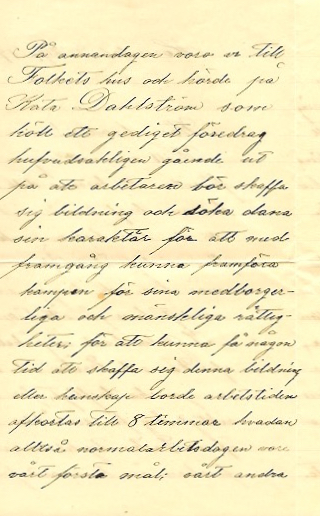 På annandagen voro vi till
Folkets hus och hörde på
Kata Dahlström som
höll ett gediget föredrag
hufvudsakligen gående ut
på att arbetaren bör skaffa
sig bildning och söka dana
sin karaktär för att med
framgång kunna framföra
kampen för sina medborger-
liga och mänskliga rättig-
heter; för att kunna få någon
tid att skaffa sig denna bildning
eller kunskap borde arbetstiden
afkortas till 8 timmar hvadan
alltså normalarbetsdagen vore
vårt första mål; vårt andra